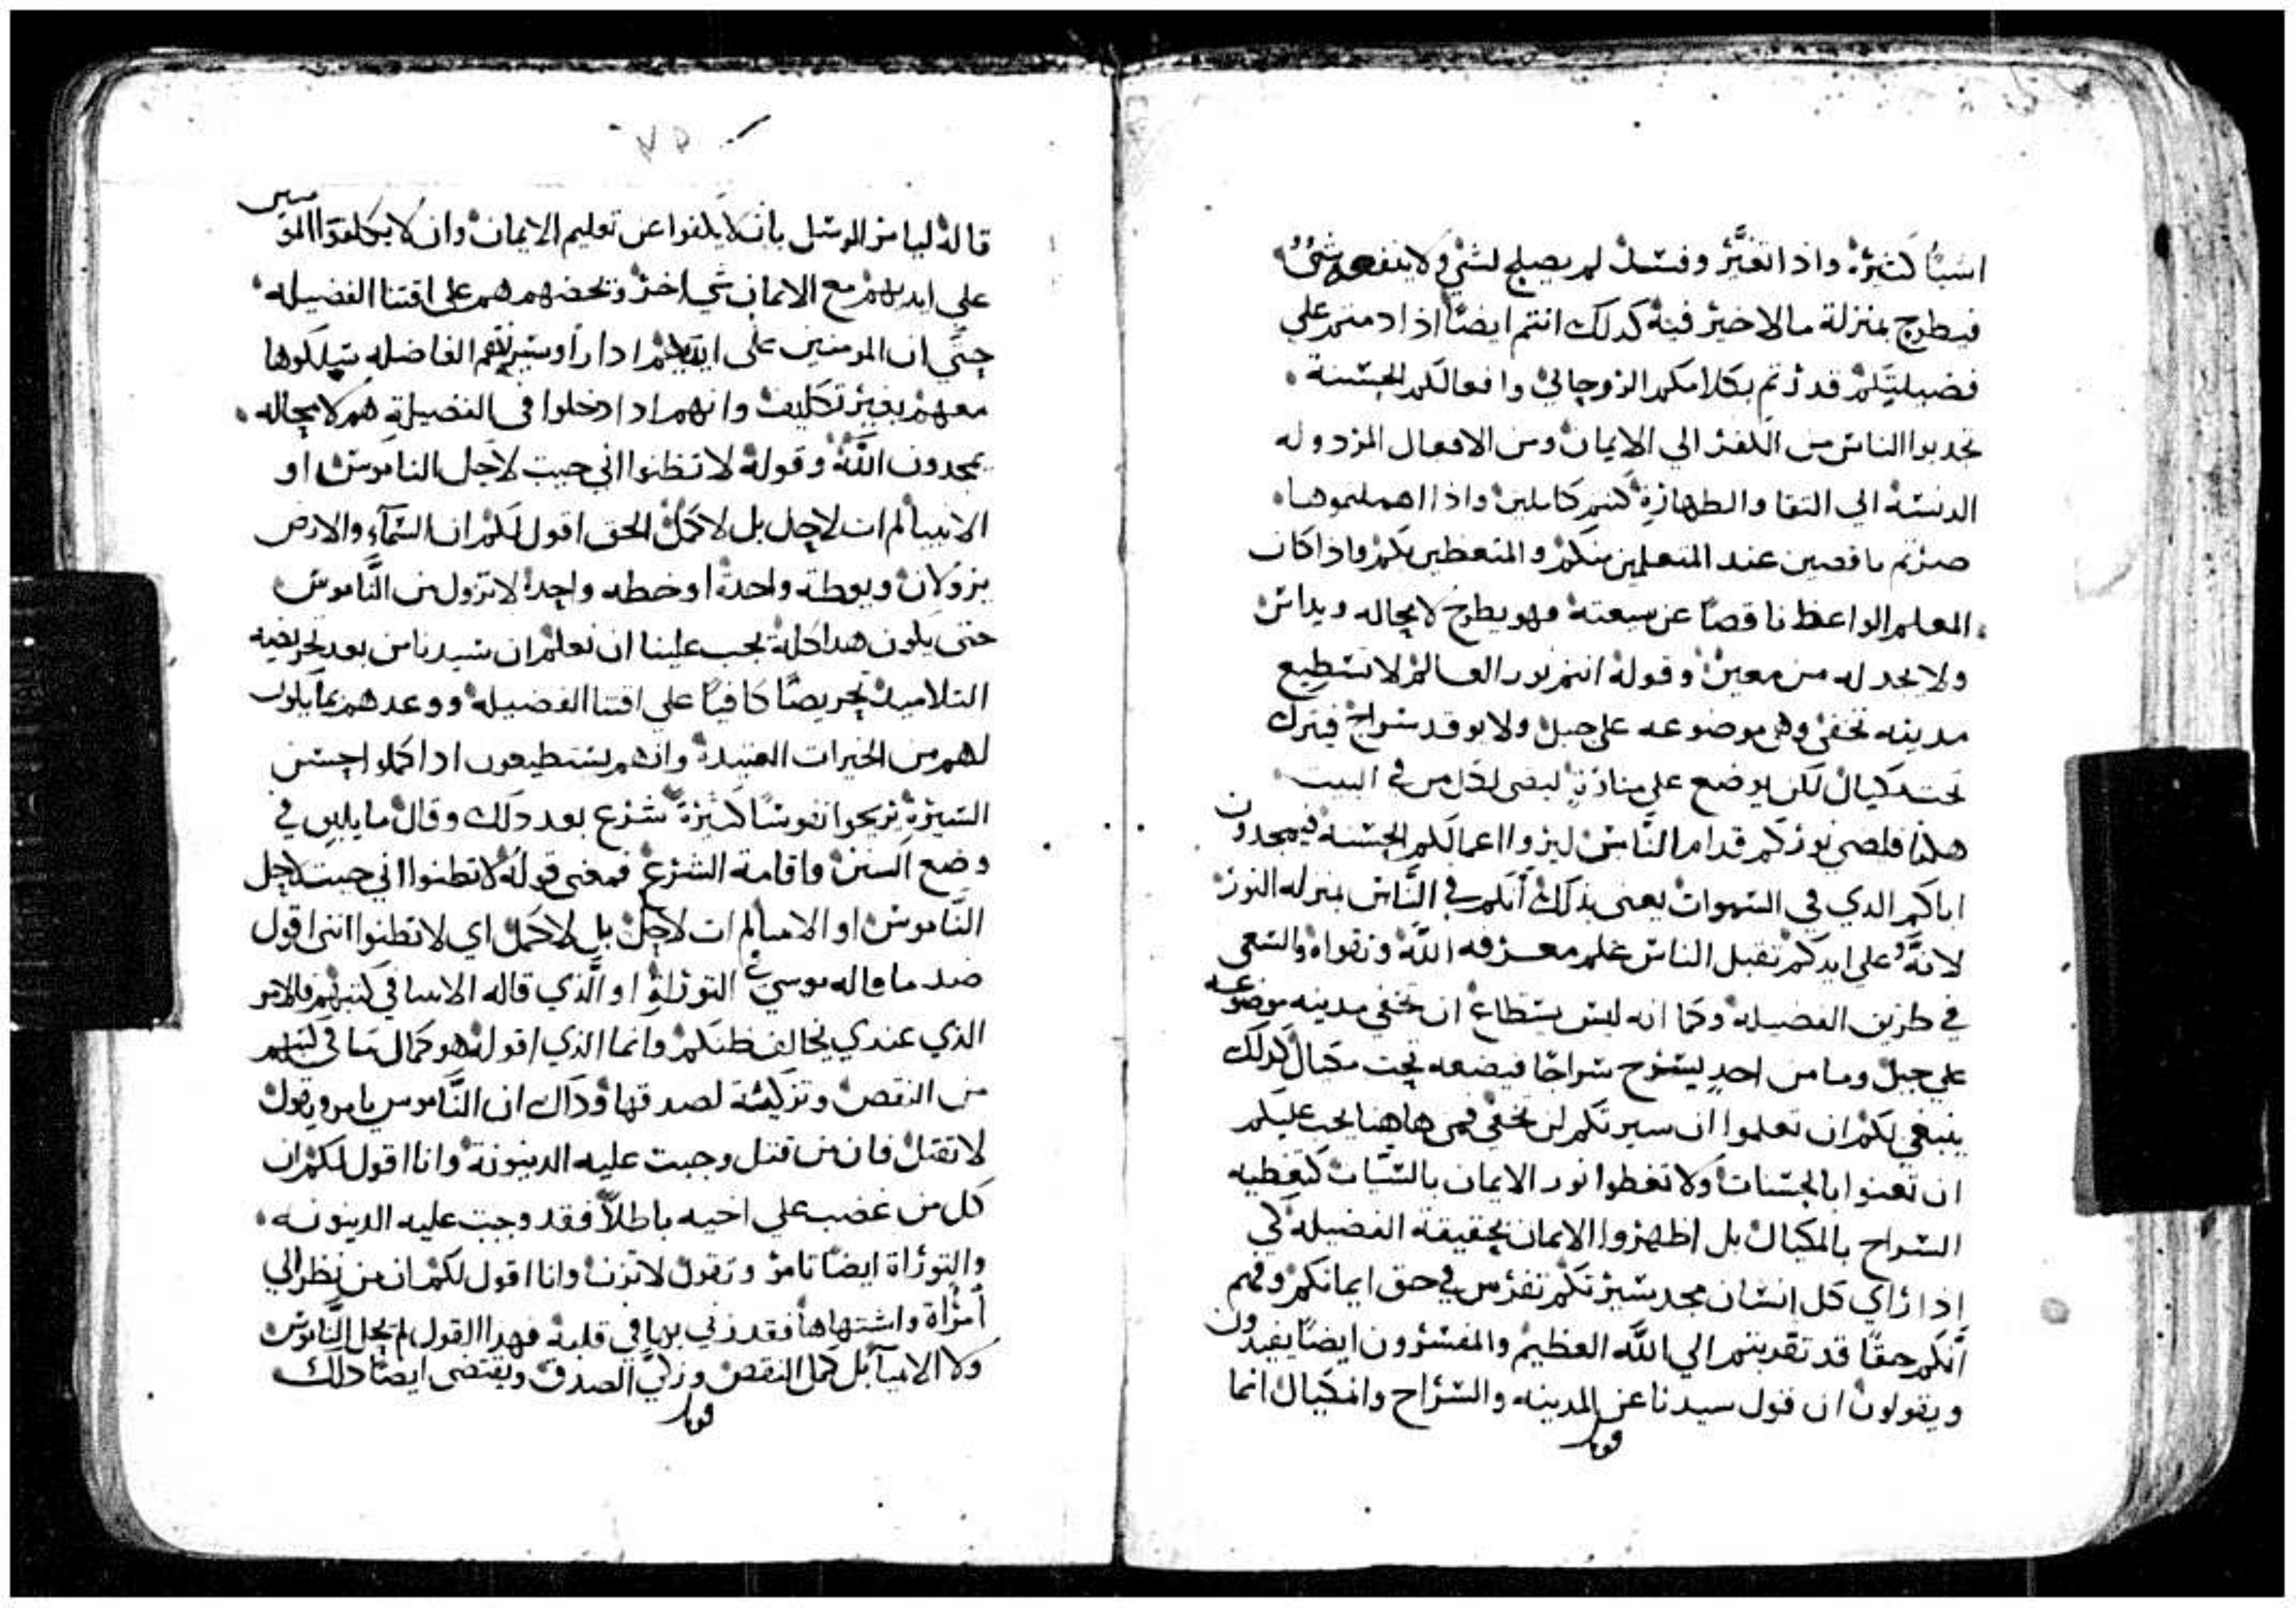 اشيا كثيرة واذا تغير وفسد لم يصلح لشي ولا ينفعه شي
فيطرح بمنزلة مالا خير فيه كدلك انتم ايضا اذا دمتم علي
فضيليتكم قدرتم بكلامكم الروحاني وافعالكم الحسنة
تجدبوا الناس من الكفر الي الايمان ومن الافعال المردوله
الدنسة الي التقا والطهارة كنتم كاملين واذا اهملتموها
صرتم ناقصين عند المتعلمين منكم والمتعظين بكم واذا كان
المعلم الواعظ ناقصا عن سيعته فهو يطرح لا محاله ويداس
ولا يجد له من معين وقوله انتم نور العالم لا تستطيع
مدينه تخفي وهي موضوعه علي جبل ولا يوقد سراج فيترك
تحت مكيال لكن يوضع علي منارة ليضي لكل من في البيت
هكدا فليضي نوركم قدام الناس ليروا اعمالكم الحسنه فيمجدون
اباكم الدي في السموات يعني بدلك انكم في الناس بمنزله النور
لانه علي ايديكم تقبل الناس علم معرفه الله وتقواه والسعي
في طريق الفضيله وكما انه ليس يستطاع ان تخفي مدينه موضوعه
علي جبل وما من احد يسرج سراجا فيضعه تحت مكيال كدلك
ينبغي لكم ان تعلموا ان سيرتكم لن تخفي فمن هاهنا يجب عليكم
ان تعتنوا بالحسنات ولا تغطوا نور الايمان بالسيات كتغطيه
السراج بالمكيال بل اظهروا الايمان بحقيقة الفضيله لكي
اذا راي كل انسان مجد سيرتكم تفرس في حق ايمانكم وفهم
انكم حقا قد تقربتم الي الله العظيم والمفسرون ايضا يفيدون
ويقولون ان قول سيدنا عن المدينه والسراج والمكيال انما
قوبل
قاله ليامر الرسل بان لا يكفوا عن تعليم الايمان وان لا يكلفوا المومنين
علي ايديهم مع الايمان شي اخر وتحضهم هم علي اقتنا الفضيله
حتي ان المومنين علي ايديهم ادا راو سيرتهم الفاضله سلكوها
معهم بغير تكليف وانهم ادا دخلوا في الفضيلة هم لا محاله
يمجدون الله وقوله لا تظنوا اني جيت لاحل الناموس او
الانبيا لم ات لاحل بل لاكمل الحق اقول لكم ان السماء والارض
يزولان ويوطة واحدة او خطه واحدا لا تزول من الناموس
حتى يكون هدا كله يجب علينا ان نعلم ان سيدنا من بعد تحريضه
التلاميد تحريصا كافيا علي اقتنا الفضيله ووعدهم بما يكون
لهم من الخيرات العتيدة وانهم يستطيعون ادا كملوا احسن
السيرة يربحوا نفوسا كثيرة شرع بعد دلك وقال ما يليق في
وضع السنن واقامة الشرع فمعني قوله لا تظنوا اني جيت لاحل
الناموس او الانبيا لم ات لاحل بل لاكمل اي لا تظنوا انني اقول
ضد ما قاله موسي في التوراة او الذي قاله الانبيا في كتبهم فالامر
الذي عندي يخالف ظنكم وانما الذي اقوله هو كمال ما في كتبهم
من النقص وتزكية لصدقها وداك ان الناموس يامر ويقول
لا تقتل فان من قتل وجبت عليه الدينونة وانا اقول لكم ان
كل من غضب علي اخيه باطلا فقد وجبت عليه الدينونه
والتوراة ايضا تامر وتقول لا تزن وانا اقول لكم ان من نظر الي
امراة واشتهاها فقد زني بها في قلبه فهدا القول لم يحل الناموس
ولا الانبيا بل كمل النقص وزكي الصدق ويقتضي ايضا دلك
قوبل